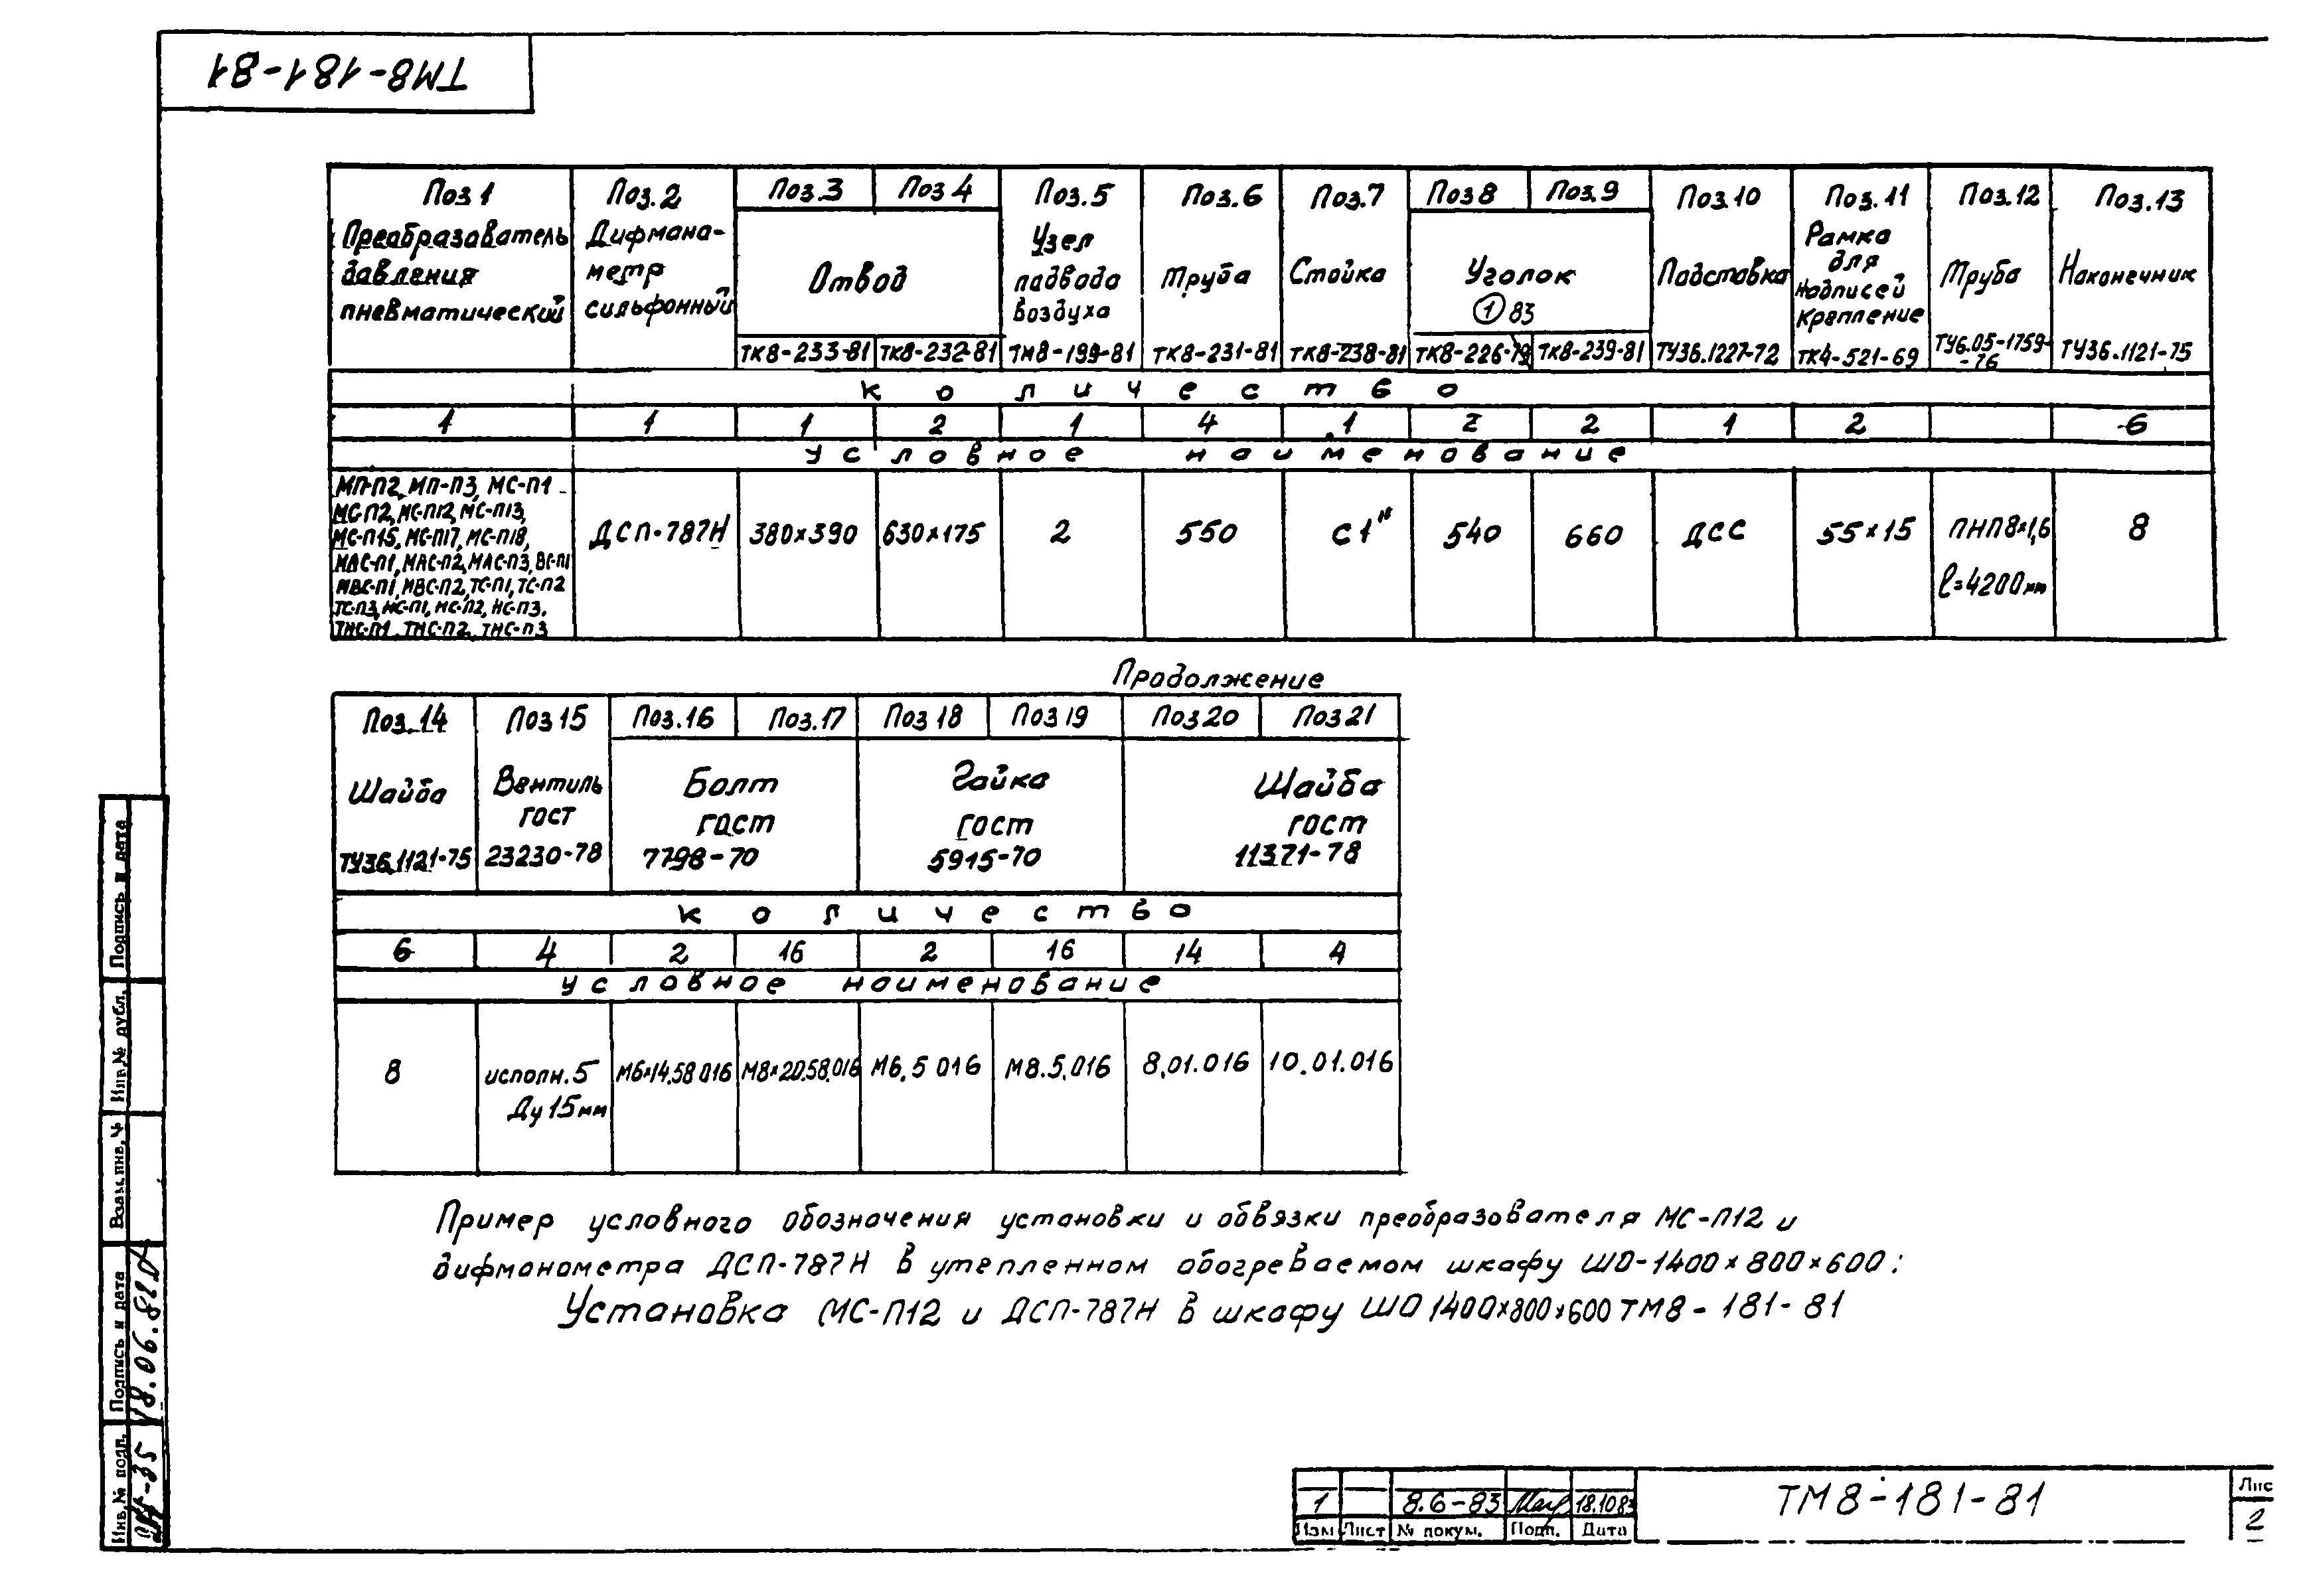 ТМ8-181-81
Поз 1 Поз.2 Поз.3 Поз 4 Поз.5 Поз.6 Поз.7 Поз 8 Поз.9 Поз.10 Поз.11 Поз.12 Поз.13
Преобразователь давления пневматический
Дифмана-
метр
сильфонный
Отвод
Узел
подвода
воздуха
Труба
Стойка
Уголок
1 83
Подставка
Рамка
для
надписей
крепление
Труба
Наконечник
ТК8-233-81 ТК8-232-81 ТМ8-199-81 ТК8-231-81 ТК8-238-81 ТК8-226-79 ТК8-239-81 ТУ36.1227-72 ТК4-521-69 ТУ6.05-1759-
-76 ТУ36.1121-75
количество
1 1 1 2 1 4 1 2 2 1 2 6
условное наименование
МП-П2, МП-П3, МС-П1
МС-П2, МС-П12, МС-П13,
МС-П15, МС-П17, МС-П18,
МАС-П1, МАС-П2, МАС-П3, ВС-П1
МВС-П1, МВС-П2, ТС-П1, ТС-П2
ТС-П3, НС-П1, НС-П2, НС-П3.
ТНС-П1, ТНС-П2, ТНС-П3
ДСП-787Н 380х390 630х175 2 550 С1" 540 660 ДСС 55х15 ПНП8х1,6
l=4200мм 8
Продолжение
Поз.14 Поз 15 Поз.16 Поз.17 Поз 18 Поз 19 Поз 20 Поз 21
Шайба
ТУ36.1121-75
Вентиль
гост
23230-78
Болт
гост
7798-70
Гайка
гост
5915-70
Шайба
гост
11371-78
количество
6 4 2 16 2 16 14 4
условное наименование
8 исполн.5
Ду 15мм М6х14.58 016 М8х20.58.016 М6.5 016 М8.5.016 8.01.016 10.01.016
Пример условного обозначения установки и обвязки преобразователя МС-П12 и
дифманометра ДСП-787Н в утепленном обогреваемом шкафу ШО-1400х800х600:
Установка МС-П12 и ДСП-787Н в шкафу ШО 1400х800х600 ТМ8-181-81
Подпись и дата
Инв.№ дубл.
Взам.инв.№
Подпись и дата
18.06.81
Инв.№ подл.
1 8.6-83 18.10.83
Изм Лист № докум. Подп. Дата
ТМ8-181-81
Лис
2